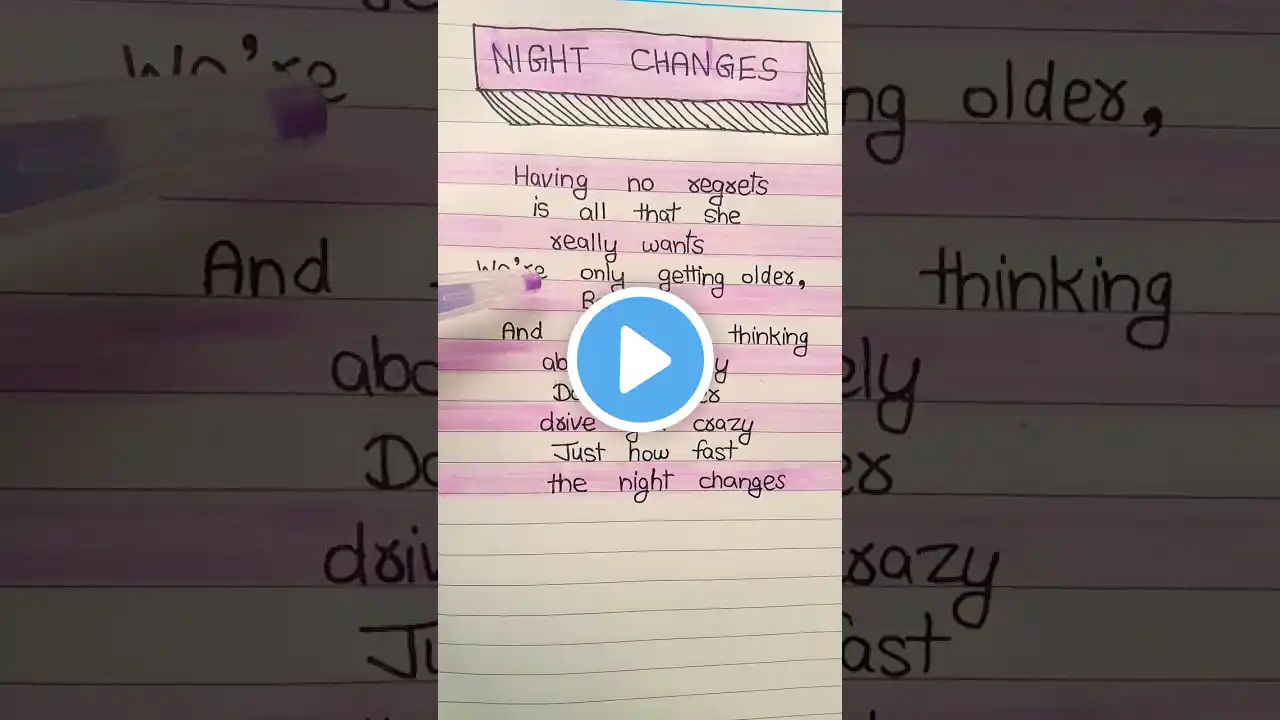 NIGHT CHANGES
Having no regrets
is all that she
really wants
We're only getting older,
And thinking
drive crazy
Just how fast
the night changes